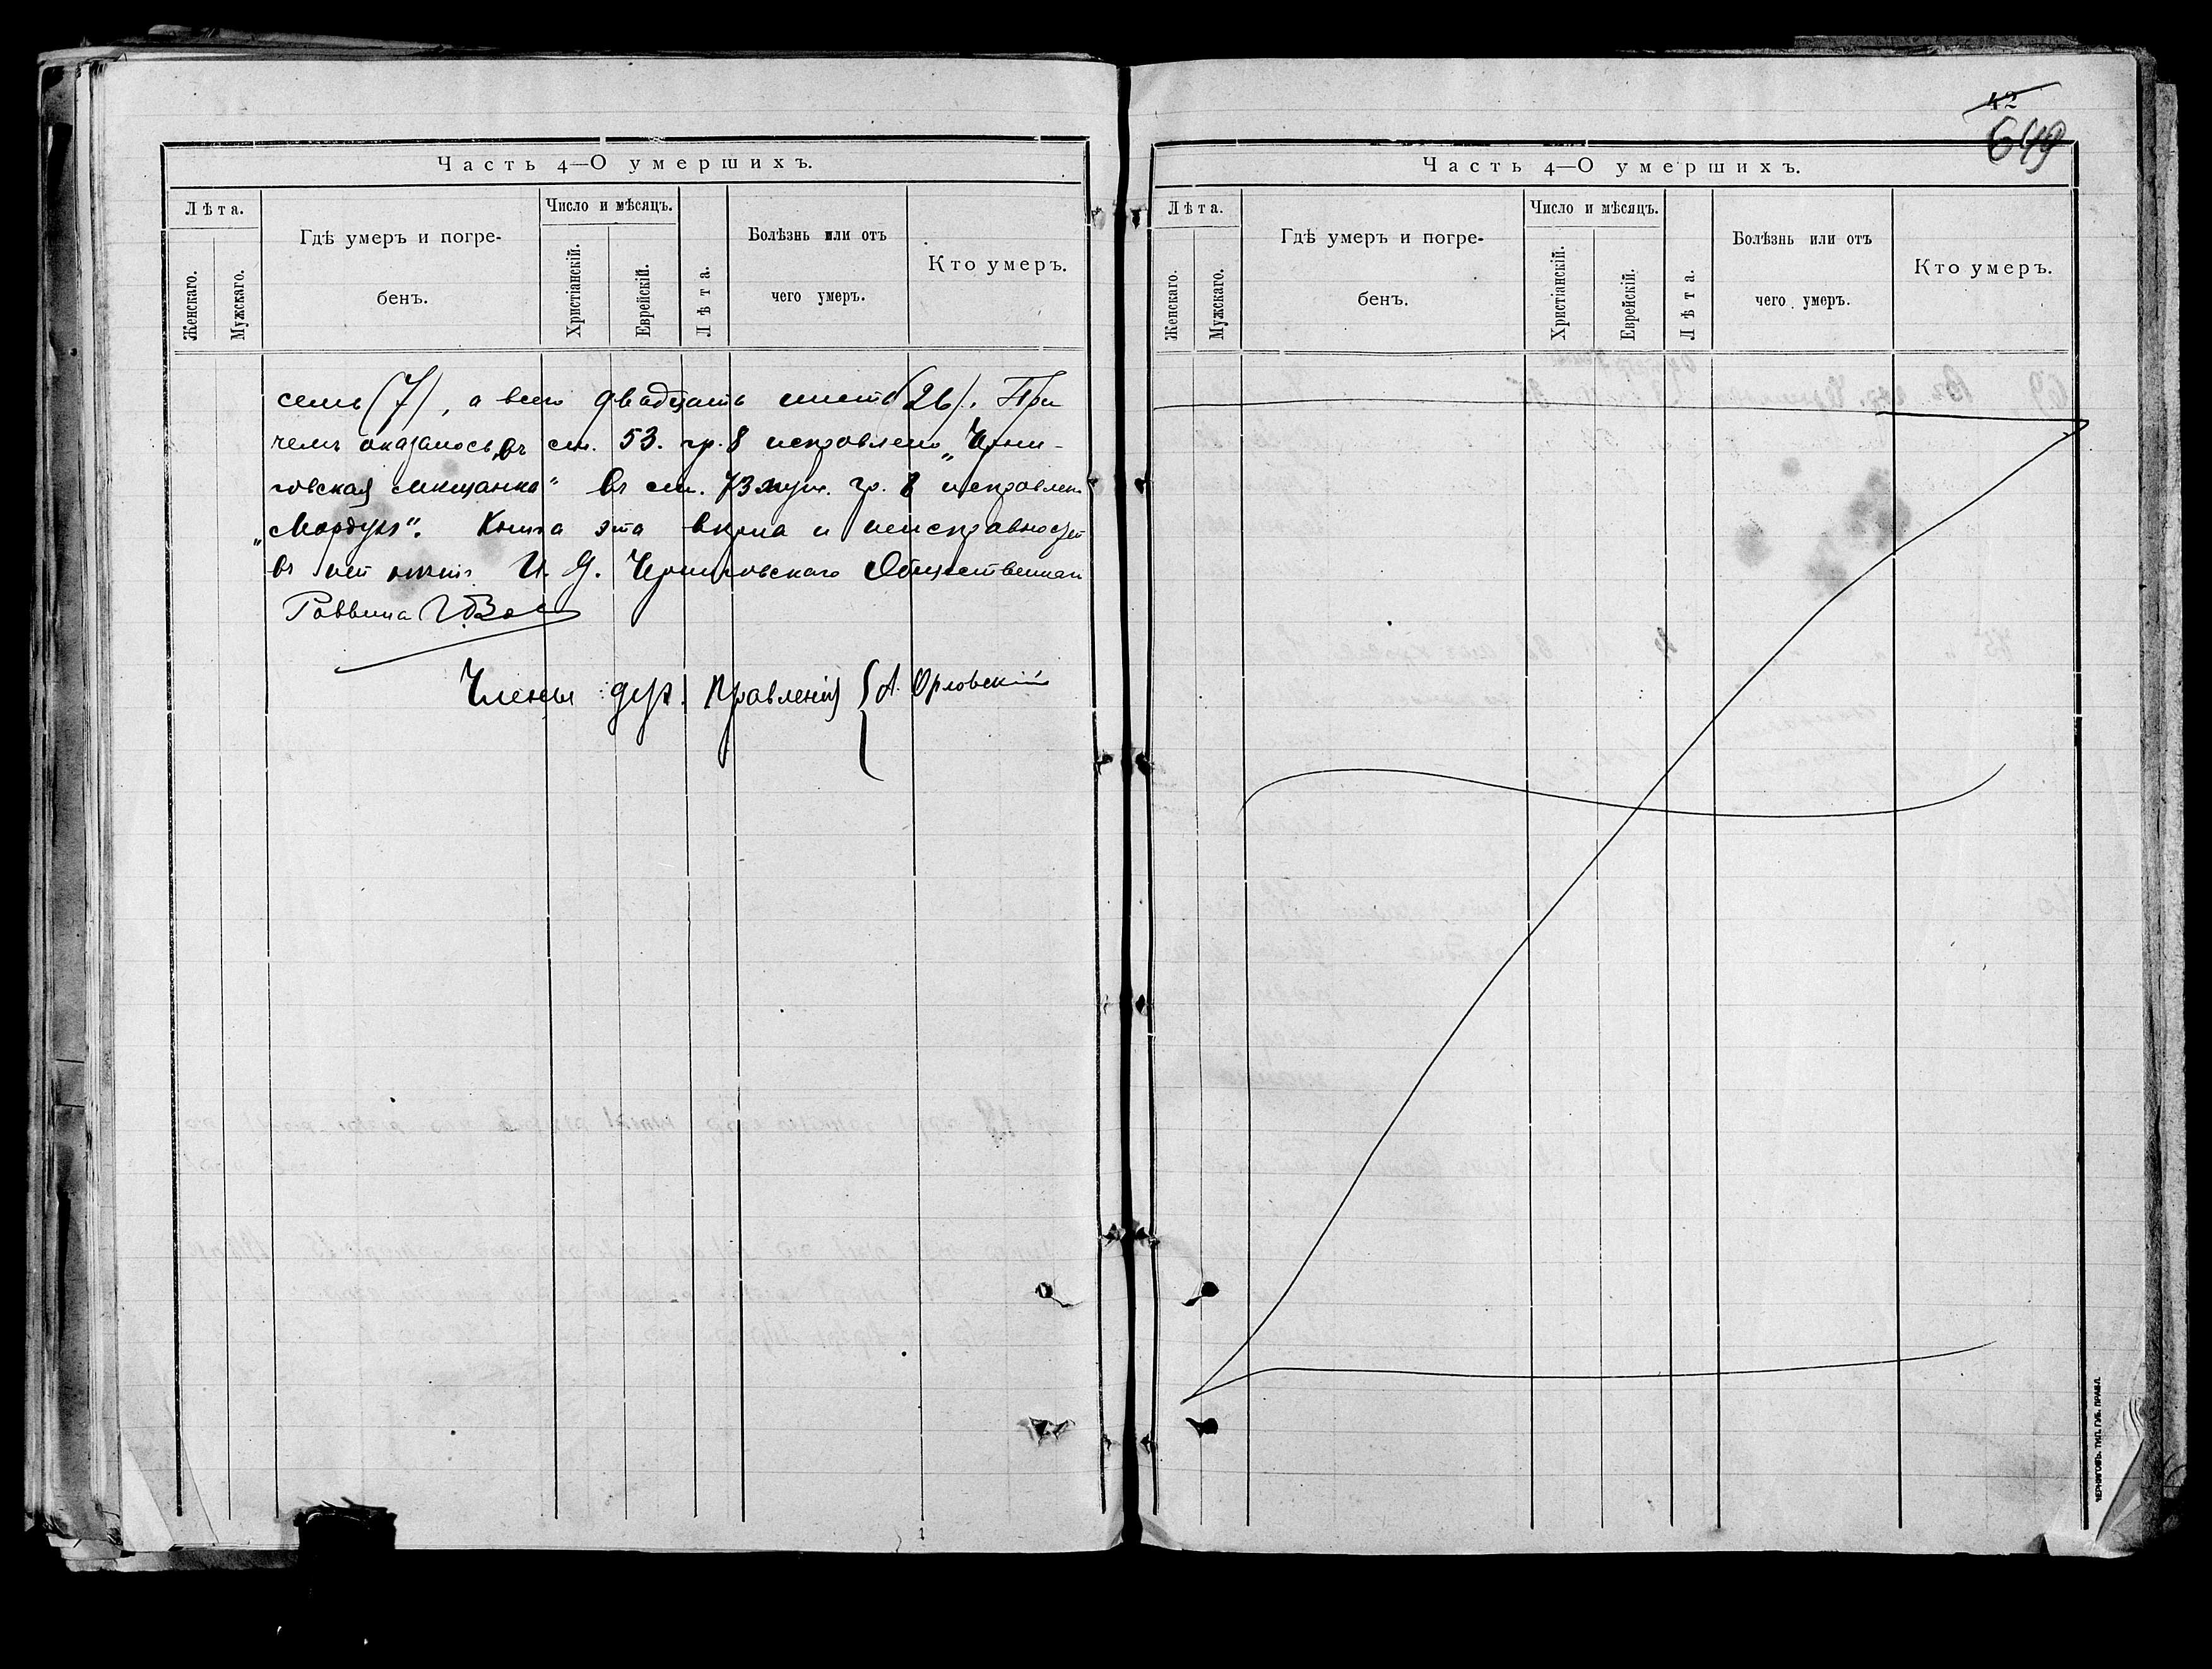 Часть 4—О умершихъ.
Лѣта.
Женскаго.
Мужскаго.
Гдѣ умеръ и погре-
бенъ.
Число и мѣсяцъ.
Христіанскій.
Еврейскій.
Лѣта.
Болѣзнь или отъ
чего умеръ.
Кто умеръ.
семь (7), а всего двадцать шесть (26). При
чемъ оказалось, въ ст. 53. гр. 8 исправлено „Черни-
говская мѣщанка“ въ ст. 73 муж. гр. 8 исправлено
„Мордухъ“. Книга эта вѣрна и неисправностей
въ ней нѣтъ. И. д. Черниговскаго Общественнаго
Раввина
Члены дух. Правленія { А. Орловскій
42
649
Часть 4—О умершихъ.
Лѣта.
Женскаго.
Мужскаго.
Гдѣ умеръ и погре-
бенъ.
Число и мѣсяцъ.
Христіанскій.
Еврейскій.
Лѣта.
Болѣзнь или отъ
чего умеръ.
Кто умеръ.
ЧЕРНИГОВЪ. ТИП. ГУБ. ПРАВЛ.